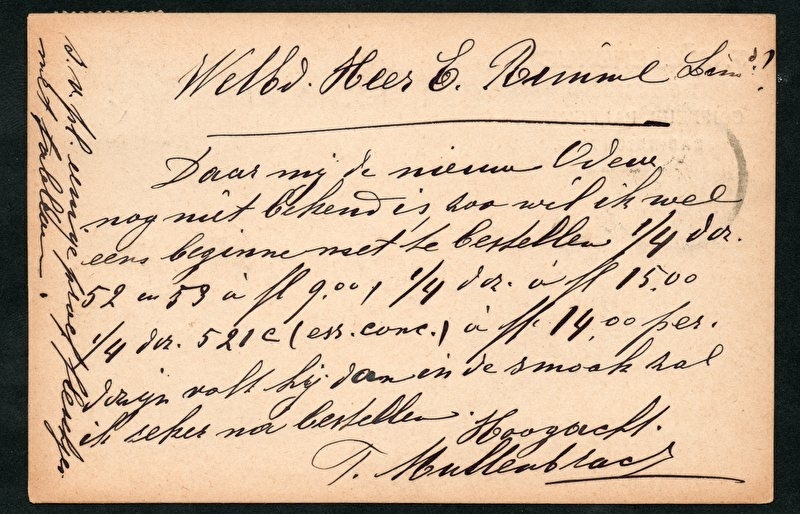 Welbd. Heer E. Rimmel
Daar mij de nieuwe Odeur
nog niet bekend is, zoo wil ik wel
eens beginne met te bestellen 1/4 doz.
52 en 53 à fl 9.00, 1/4 doz. à fl 15.00
1/4 doz. 521c (ess. conc.) à fl. 14,00 per.
dozijn valt hij dan in de smaak zal
ik zeker na bestellen.
Hoogacht.
T. Mullenbrach
s. v. pl. eenige
met